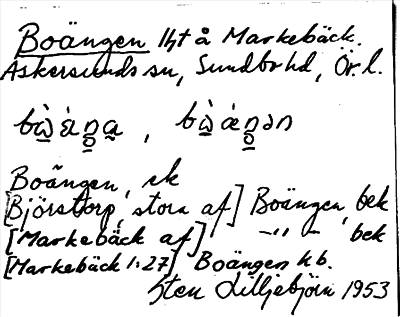 Boängen lht å Markebäck.
Askersunds sn, Sundbo hd, Ör. l.
Boängen, ek
[Björstorp, stora af] Boängen, bek
[Markebäck af] -"- bek
[Markebäck 1:27] Boängen hb.
Sten Lilljebjörn 1953